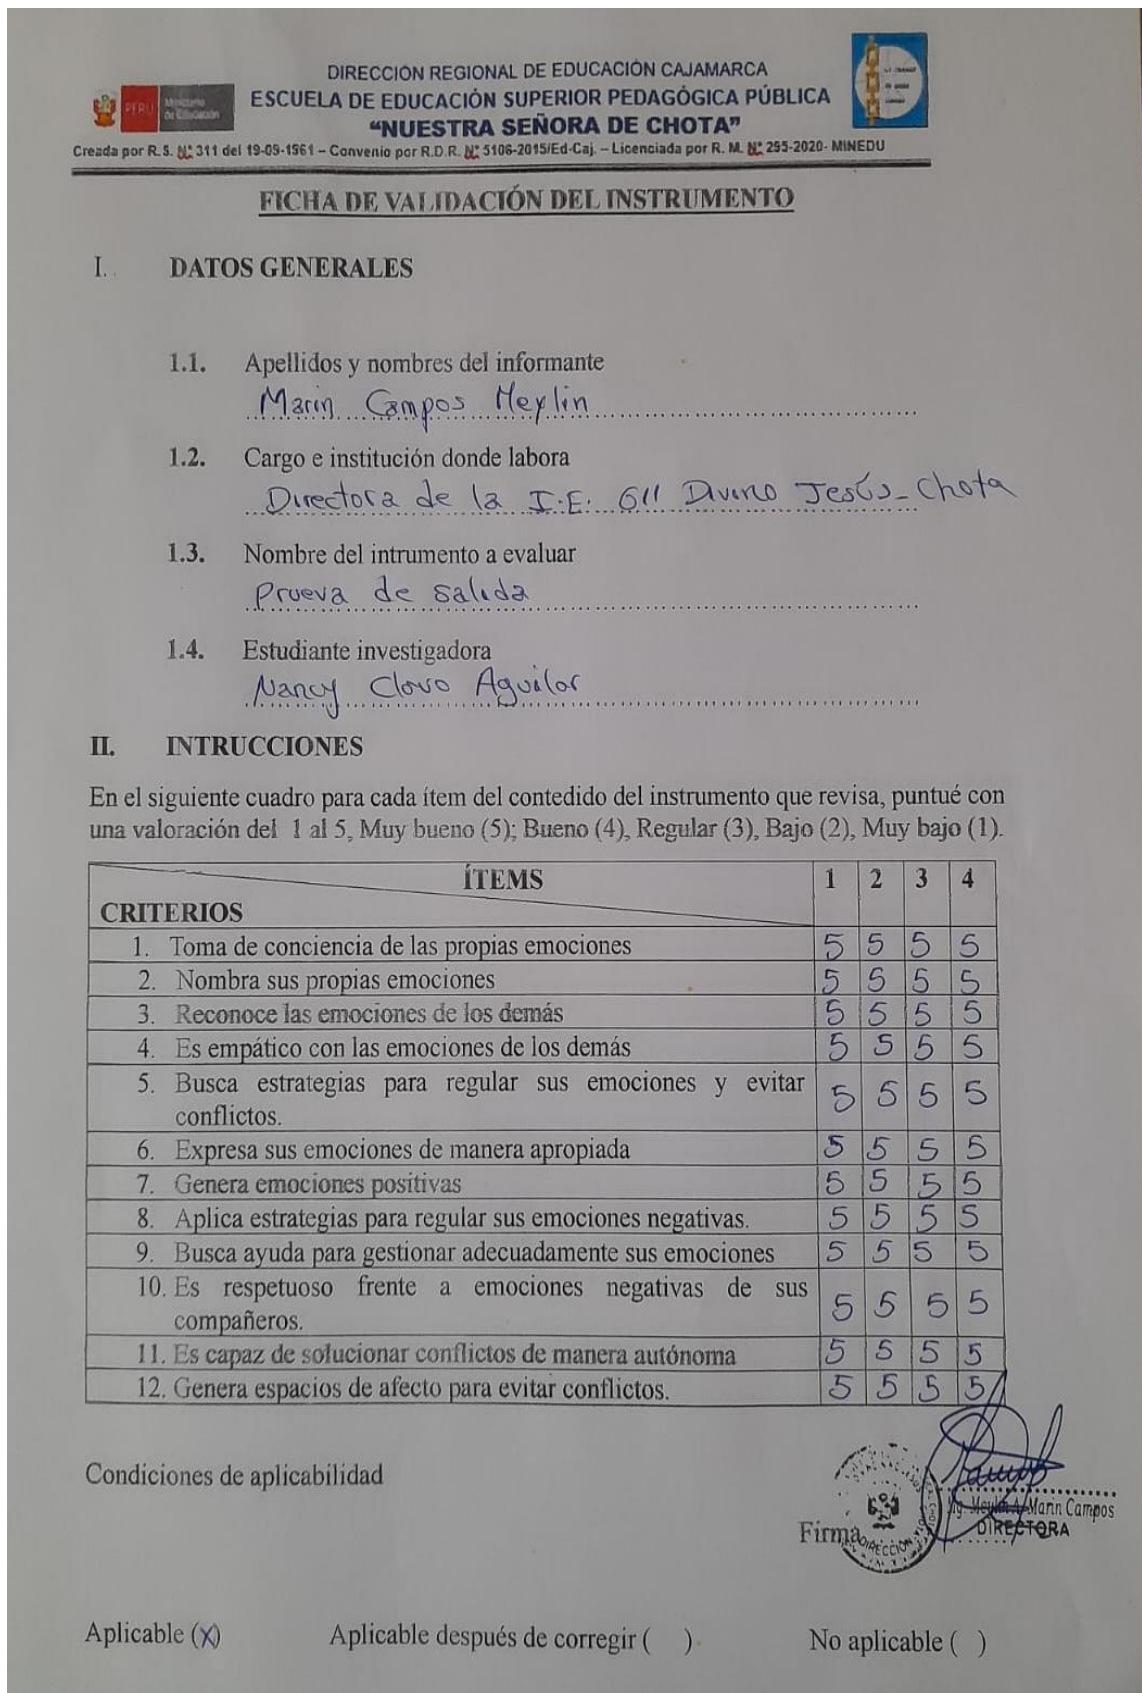 DIRECCIÓN REGIONAL DE EDUCACIÓN CAJAMARCA
PERÚ Ministerio de Educación
ESCUELA DE EDUCACIÓN SUPERIOR PEDAGÓGICA PÚBLICA
“NUESTRA SEÑORA DE CHOTA”
Creada por R.S. Nº 311 del 19-09-1561 – Convenio por R.D.R. Nº 5106-2015/Ed-Caj. – Licenciada por R. M. Nº 295-2020- MINEDU
FICHA DE VALIDACIÓN DEL INSTRUMENTO
I. DATOS GENERALES
1.1. Apellidos y nombres del informante
Marin Campos Meylin
1.2. Cargo e institución donde labora
Directora de la I.E. 611 Divino Jesús - Chota
1.3. Nombre del intrumento a evaluar
Prueva de salida
1.4. Estudiante investigadora
Nancy Clavo Aguilar
II. INTRUCCIONES
En el siguiente cuadro para cada ítem del contedido del instrumento que revisa, puntué con
una valoración del 1 al 5, Muy bueno (5); Bueno (4), Regular (3), Bajo (2), Muy bajo (1).
ÍTEMS 1 2 3 4
CRITERIOS
1. Toma de conciencia de las propias emociones 5 5 5 5
2. Nombra sus propias emociones 5 5 5 5
3. Reconoce las emociones de los demás 5 5 5 5
4. Es empático con las emociones de los demás 5 5 5 5
5. Busca estrategias para regular sus emociones y evitar
conflictos. 5 5 5 5
6. Expresa sus emociones de manera apropiada 5 5 5 5
7. Genera emociones positivas 5 5 5 5
8. Aplica estrategias para regular sus emociones negativas. 5 5 5 5
9. Busca ayuda para gestionar adecuadamente sus emociones 5 5 5 5
10. Es respetuoso frente a emociones negativas de sus
compañeros. 5 5 5 5
11. Es capaz de solucionar conflictos de manera autónoma 5 5 5 5
12. Genera espacios de afecto para evitar conflictos. 5 5 5 5
Condiciones de aplicabilidad
Marin Campos
DIRECTORA
Firma
DIRECCIÓN
Aplicable (X) Aplicable después de corregir ( ) No aplicable ( )